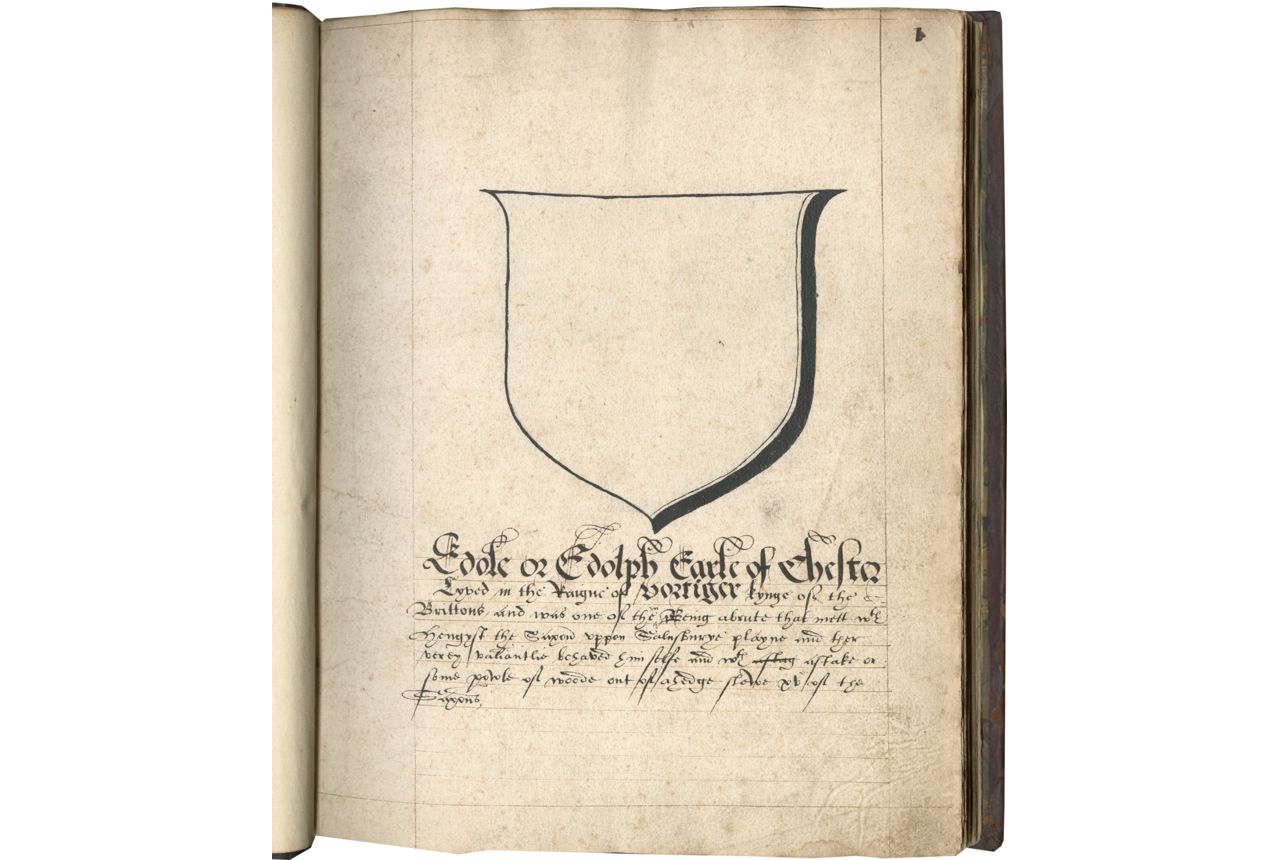 1
Edole or Edolph Earle of Chester
Lyved in the Raigne of Vortiger kynge of the
Brittons and was one of the Being abrute that mett wth
Hengyst the Saxon vppon Salusburye playne and ther
verey valiantlie behaved him selfe and wth a stake or
some powle of woode out of a hedge slewe xv of the
Saxons